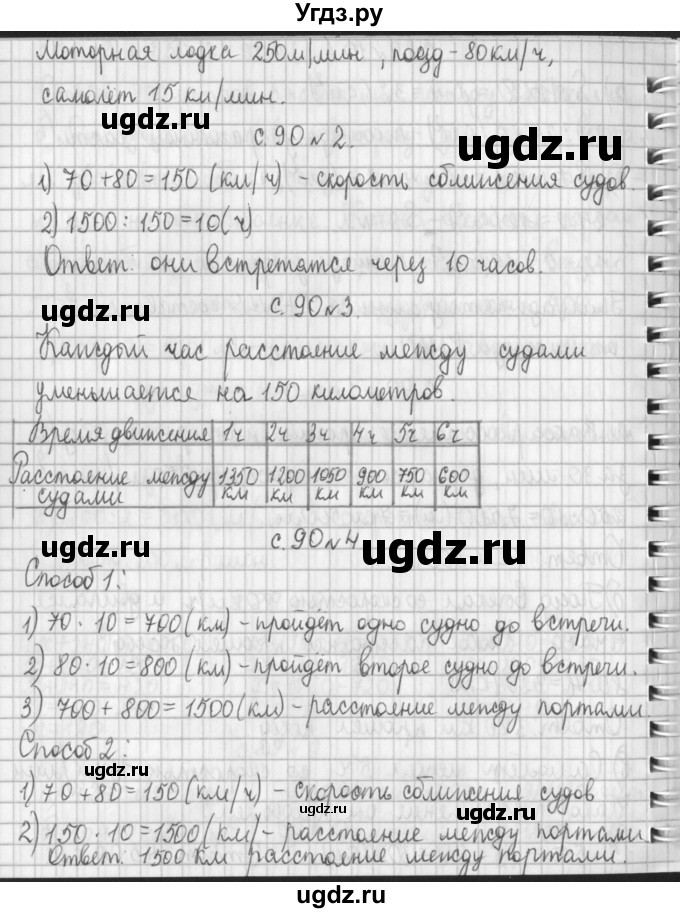 Угдз.ру
Моторная лодка 250м/мин, поезд - 80км/ч,
самолёт 15 км/мин.
ugdz.ru
ugdz.ru
с. 90 №2.
1) 70 + 80 = 150 (км/ч) - скорость сближения судов.
2) 1500 : 150 = 10(ч)
ugdz.ru
Ответ: они встретятся через 10 часов.
ugdz.ru
с. 90 №3.
ugdz.ru
Каждый час расстояние между судами
уменьшается на 150 километров.
Время движения 1ч 2ч 3ч 4ч 5ч 6ч
Расстояние между судами 1350 км 1200 км 1050 км 900 км 750 км 600 км
ugdz.ru
с. 90 №4
ugdz.ru
Способ 1:
1) 70 · 10 = 700 (км) - пройдёт одно судно до встречи.
2) 80 · 10 = 800 (км) - пройдёт второе судно до встречи.
3) 700 + 800 = 1500 (км) - расстояние между портами
Способ 2:
ugdz.ru
ugdz.ru
1) 70 + 80 = 150 (км/ч) - скорость сближения судов
ugdz.ru
ugdz.ru
2) 150 · 10 = 1500 (км) - расстояние между портами.
Ответ: 1500 км расстояние между портами.
ugdz.ru